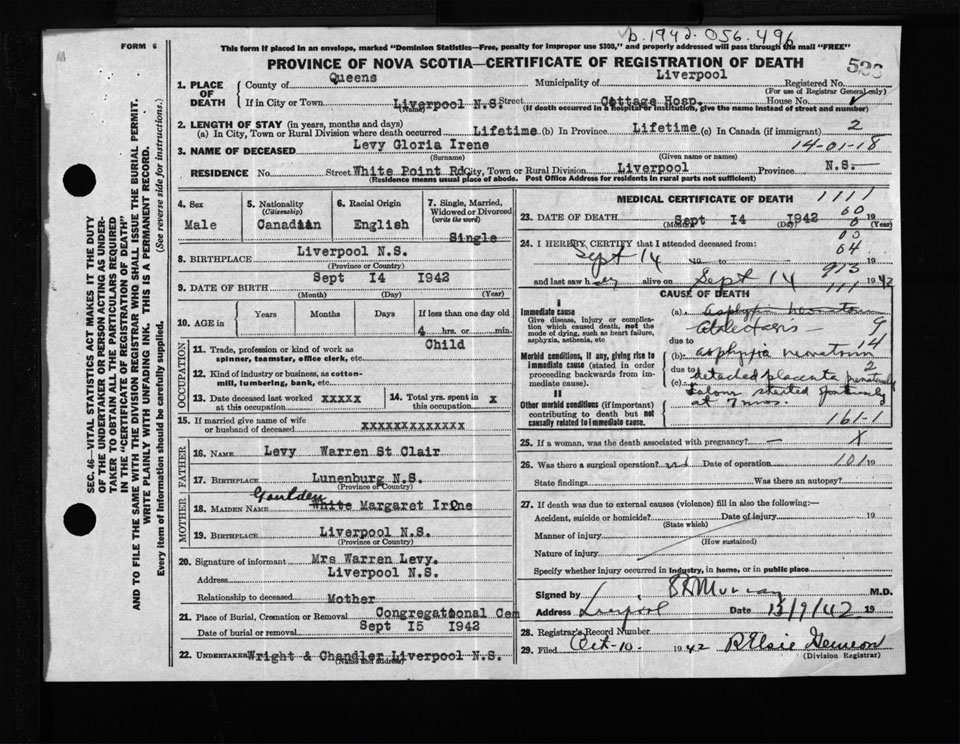 b. 1942. 056.496
FORM 6
This form if placed in an envelope, marked "Dominion Statistics—Free, penalty for improper use $300," and properly addressed will pass through the mail "FREE"
PROVINCE OF NOVA SCOTIA—CERTIFICATE OF REGISTRATION OF DEATH
1. PLACE OF DEATH
County of Queens Municipality of Liverpool Registered No.
(For use of Registrar General only)
If in City or Town Liverpool N.S. Street Cottage Hosp. House No.
(Name) (If death occurred in a hospital or institution, give the name instead of street and number)
2. LENGTH OF STAY (in years, months and days)
(a) In City, Town or Rural Division where death occurred Lifetime (b) In Province Lifetime (c) In Canada (if immigrant) 2
14-01-18
3. NAME OF DECEASED Levy Gloria Irene
(Surname) (Given name or names)
RESIDENCE No. Street White Point Rd City, Town or Rural Division Liverpool Province N.S.
(Residence means usual place of abode. Post Office Address for residents in rural parts not sufficient)
4. Sex Male
5. Nationality (Citizenship) Canadian
6. Racial Origin English
7. Single, Married, Widowed or Divorced (write the word) Single
8. BIRTHPLACE Liverpool N.S.
(Province or Country)
9. DATE OF BIRTH Sept 14 1942
(Month) (Day) (Year)
10. AGE in Years Months Days If less than one day old
4 hrs. or min.
OCCUPATION
11. Trade, profession or kind of work as spinner, teamster, office clerk, etc. Child
12. Kind of industry or business, as cotton-mill, lumbering, bank, etc.
13. Date deceased last worked at this occupation xxxxx
14. Total yrs. spent in this occupation x
15. If married give name of wife or husband of deceased xxxxxxxxxxxxx
FATHER
16. NAME Levy Warren St Clair
17. BIRTHPLACE Lunenburg N.S.
(Province or Country)
MOTHER
Goulden
18. MAIDEN NAME White Margaret Irene
19. BIRTHPLACE Liverpool N.S.
(Province or Country)
20. Signature of informant Mrs Warren Levy.
Address Liverpool N.S.
Relationship to deceased Mother
21. Place of Burial, Cremation or Removal Congregational Cem
Date of burial or removal Sept 15 1942
22. UNDERTAKER Wright & Chandler Liverpool N.S.
(Name and address)
MEDICAL CERTIFICATE OF DEATH
23. DATE OF DEATH Sept 14 1942 19
(Month) (Day) (Year)
24. I HEREBY CERTIFY that I attended deceased from:
Sept 14 19 to
and last saw her alive on Sept 14 1942
CAUSE OF DEATH
I
Immediate cause
Give disease, injury or complication which caused death, not the mode of dying, such as heart failure, asphyxia, asthenia, etc
(a) asphyxia neonatorum
due to
Morbid conditions, if any, giving rise to immediate cause (stated in order proceeding backwards from immediate cause).
(b) asphyxia neonatorum
due to
(c) detached placenta prematurely
labour started
at 7 mos.
II
Other morbid conditions (if important) contributing to death but not causally related to immediate cause.
161-1
25. If a woman, was the death associated with pregnancy? — X
26. Was there a surgical operation? Date of operation 101 19
State findings Was there an autopsy?
27. If death was due to external causes (violence) fill in also the following:—
Accident, suicide or homicide? Date of injury 19
(State which)
Manner of injury
(How sustained)
Nature of injury
Specify whether injury occurred in industry, in home, or in public place
Signed by Murray M.D.
Address Liverpool Date 15/9/42 19
28. Registrar's Record Number
29. Filed Oct-10- 1942 R Elsie
(Division Registrar)
SEC. 46—VITAL STATISTICS ACT MAKES IT THE DUTY
OF THE UNDERTAKER OR PERSON ACTING AS UNDER-
TAKER TO OBTAIN ALL THE PARTICULARS REQUIRED
IN THE "CERTIFICATE OF REGISTRATION OF DEATH"
AND TO FILE THE SAME WITH THE DIVISION REGISTRAR WHO SHALL ISSUE THE BURIAL PERMIT.
WRITE PLAINLY WITH UNFADING INK. THIS IS A PERMANENT RECORD.
Every item of Information should be carefully supplied. (See reverse side for instructions.)